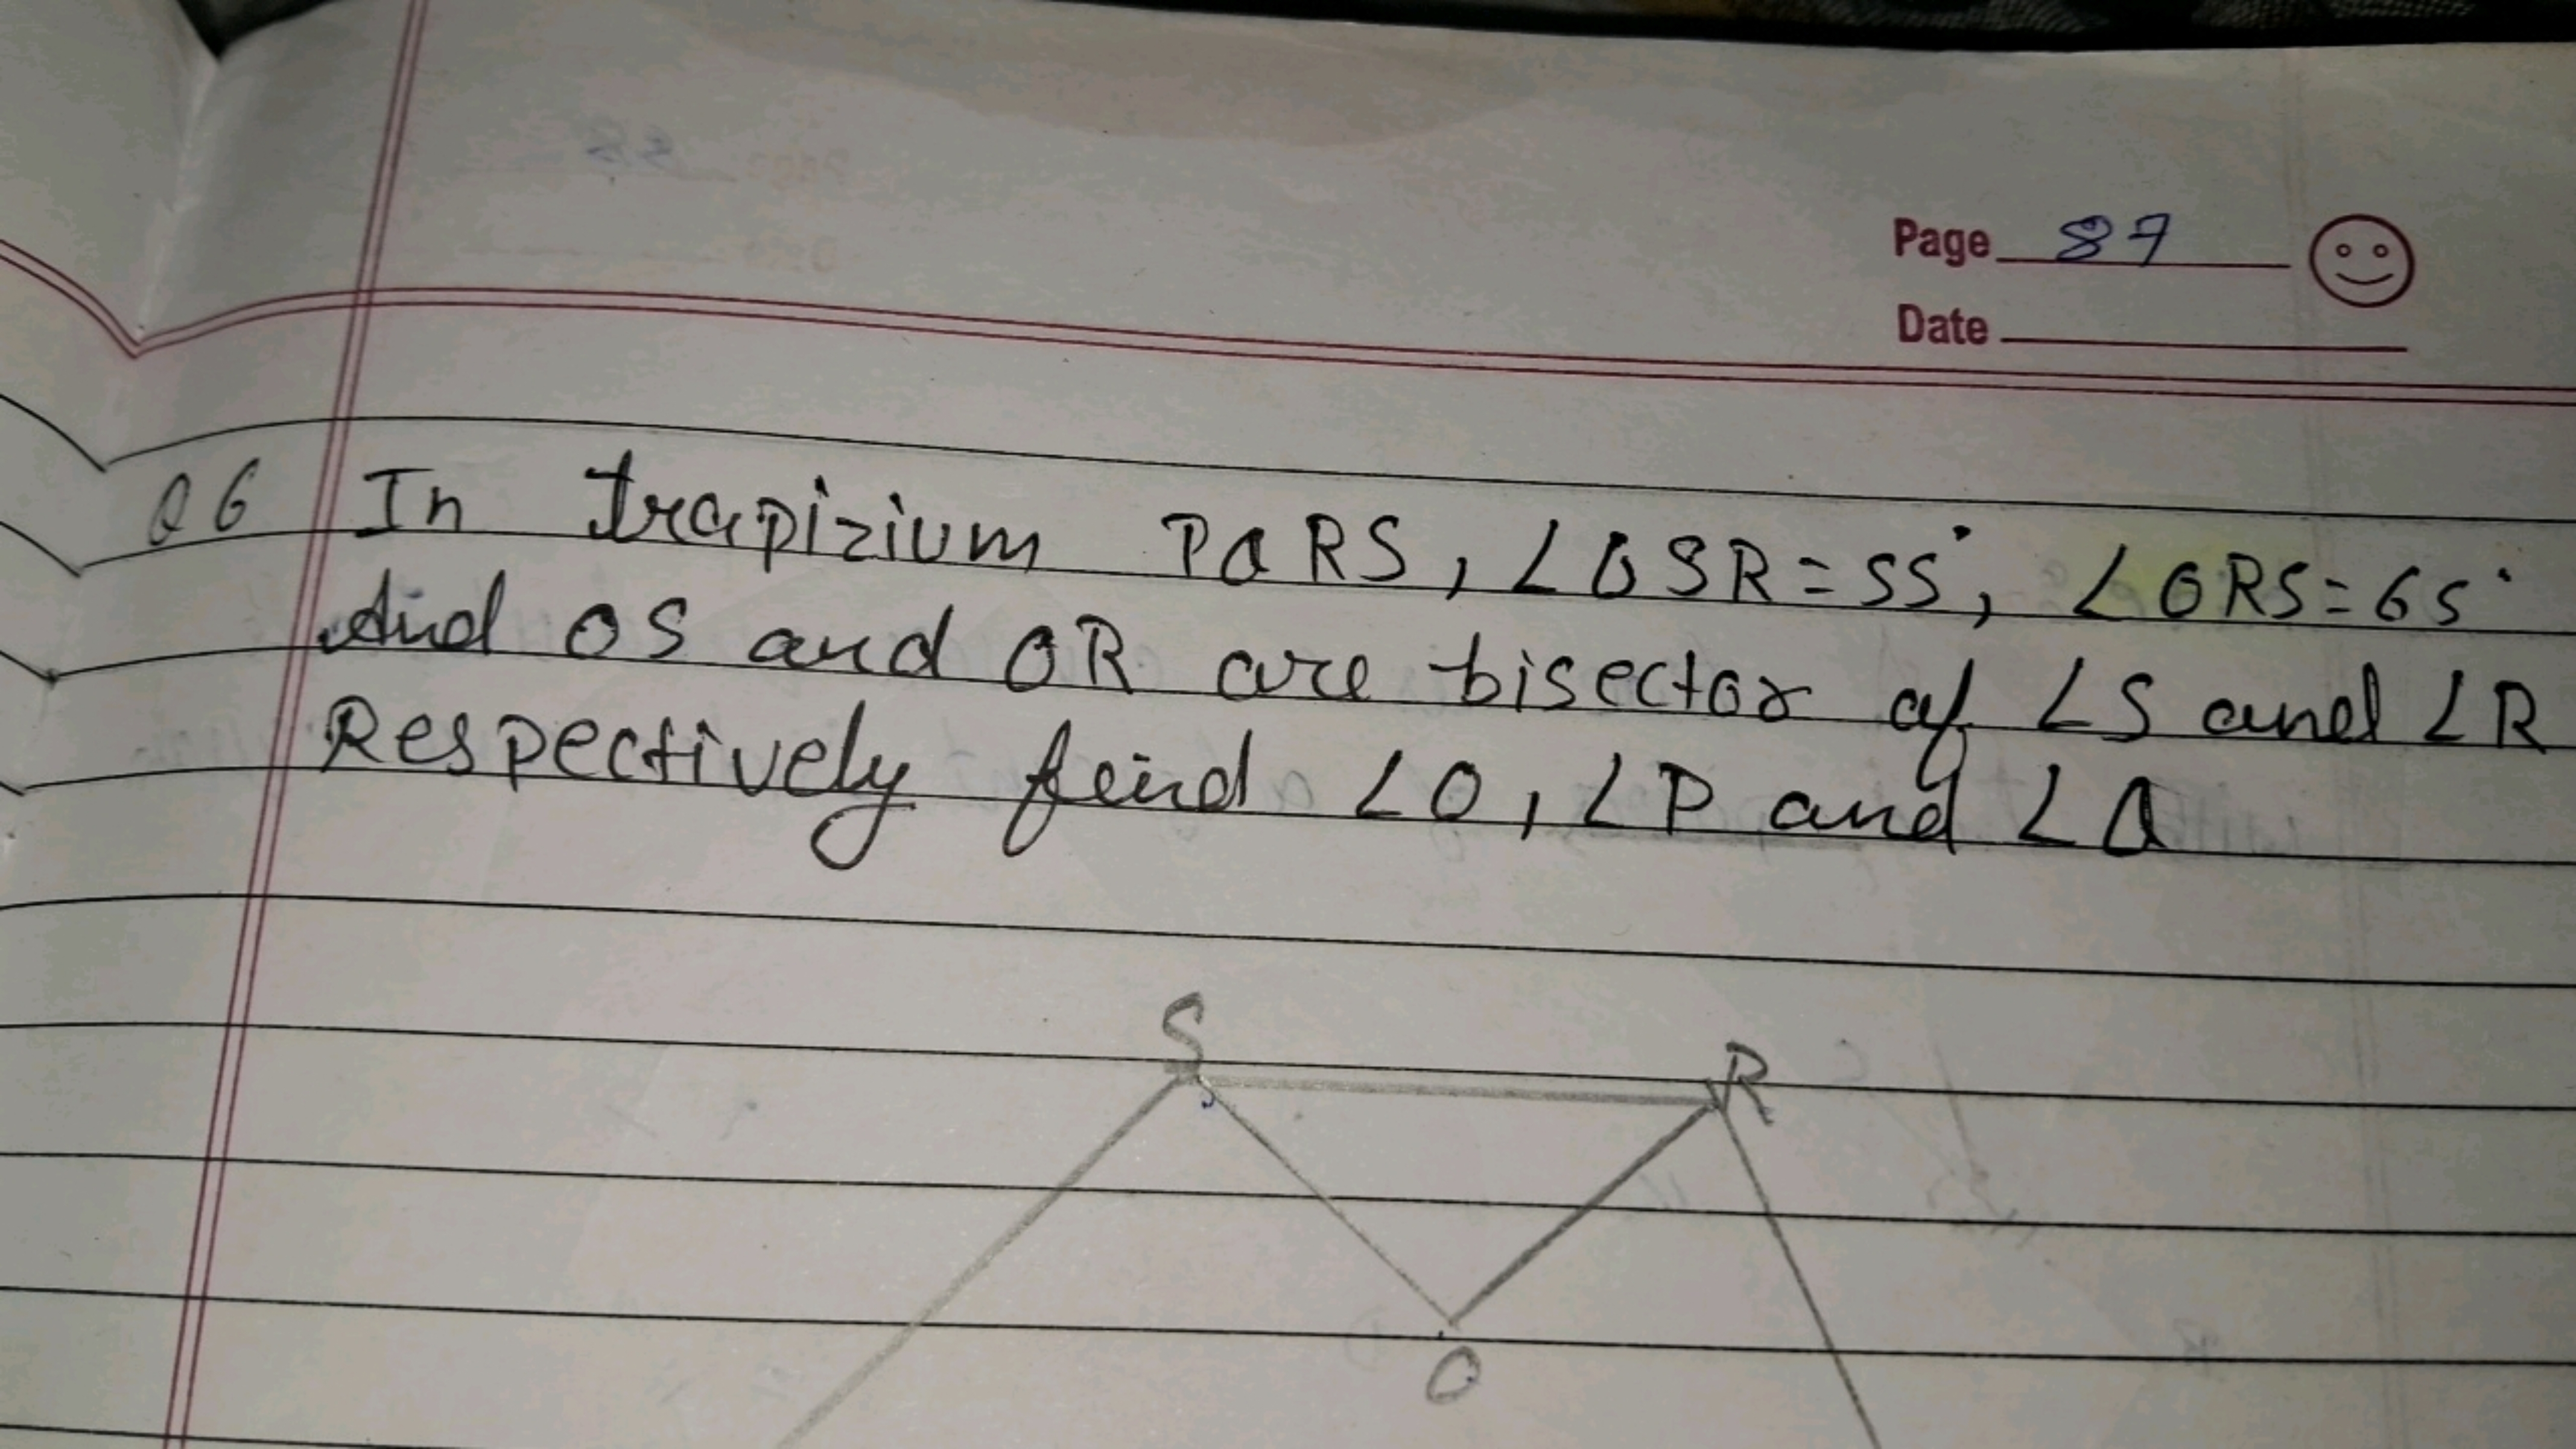 Page 87
Date
Q6 In trapizium PQRS, ∠OSR = 55°, ∠ORS = 65°
And OS and OR are bisector of ∠S and ∠R
Respectively feind ∠O, ∠P and ∠Q
S
R
O